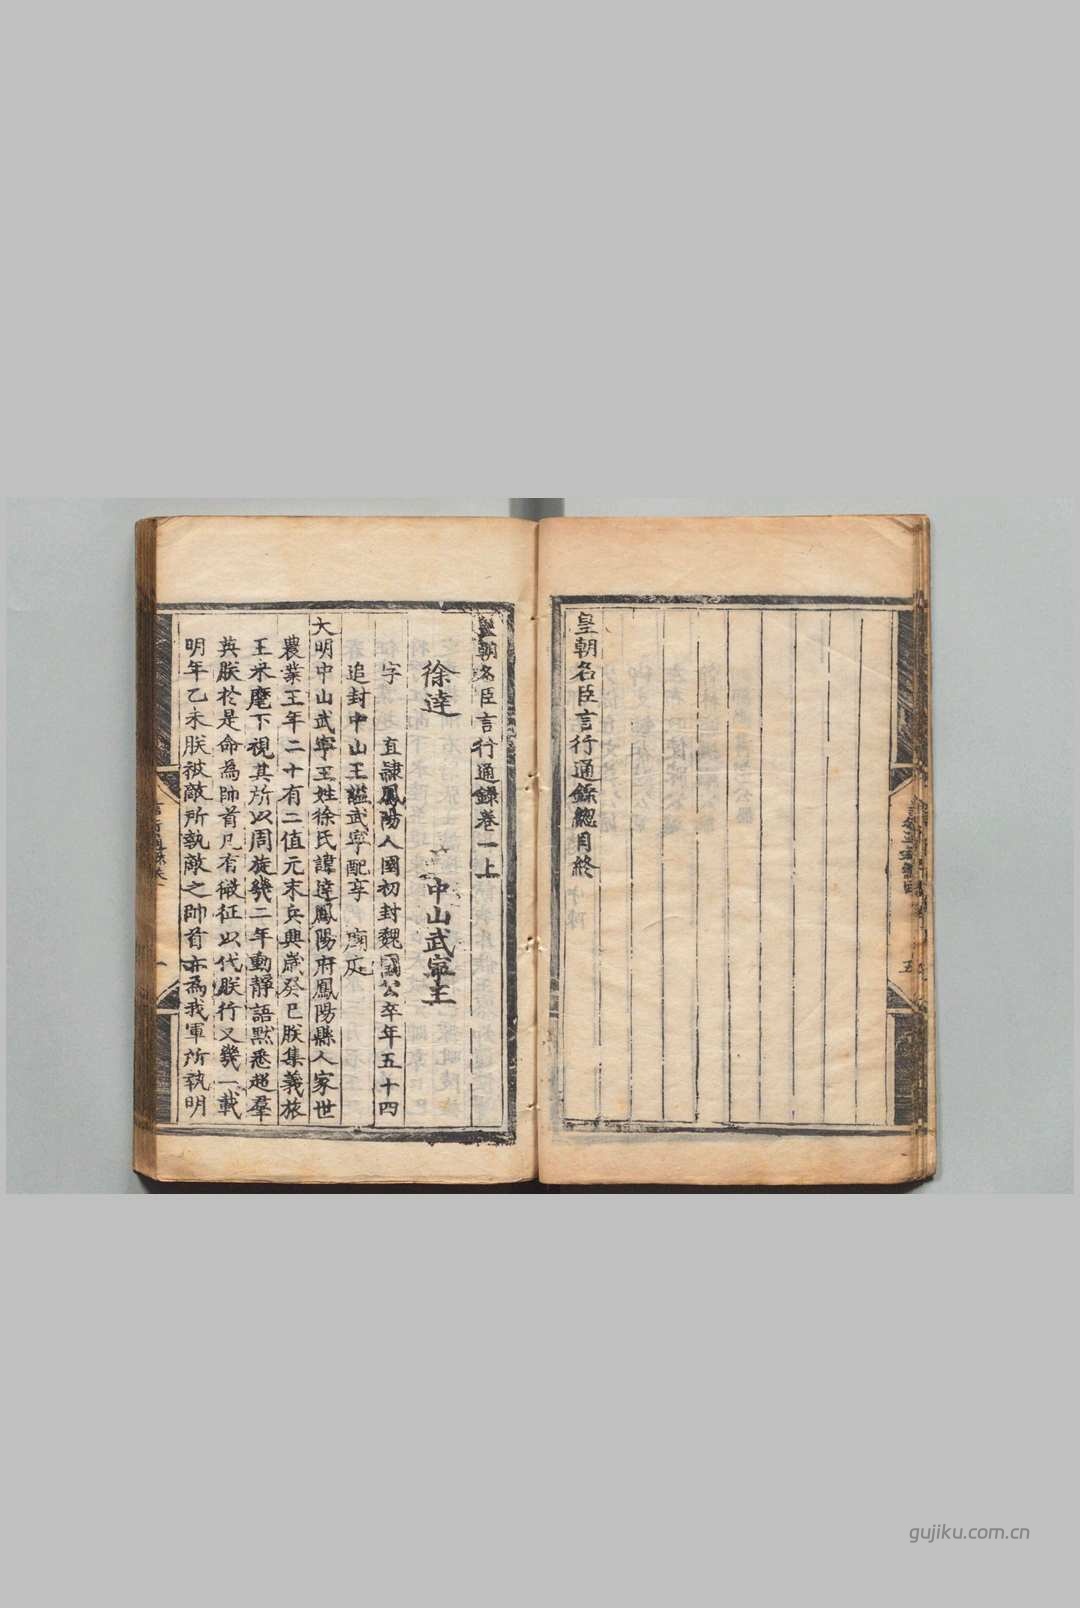 皇朝名臣言行通錄總目終
皇朝名臣言行通錄卷一上
徐達 中山武寧王
字 直隸鳳陽人國初封魏國公卒年五十四
追封中山王謚武寧配享 廟庭
大明中山武寧王姓徐氏諱達鳳陽府鳳陽縣人家世
農業王年二十有二值元末兵興歲癸巳朕集義旅
王來麾下視其所以周旋幾二年動靜語默悉超羣
英朕於是命為帥首凡有微征以代朕行又幾一載
明年乙未朕被敵所執敵之帥首亦為我軍所執明
gujiku.com.cn